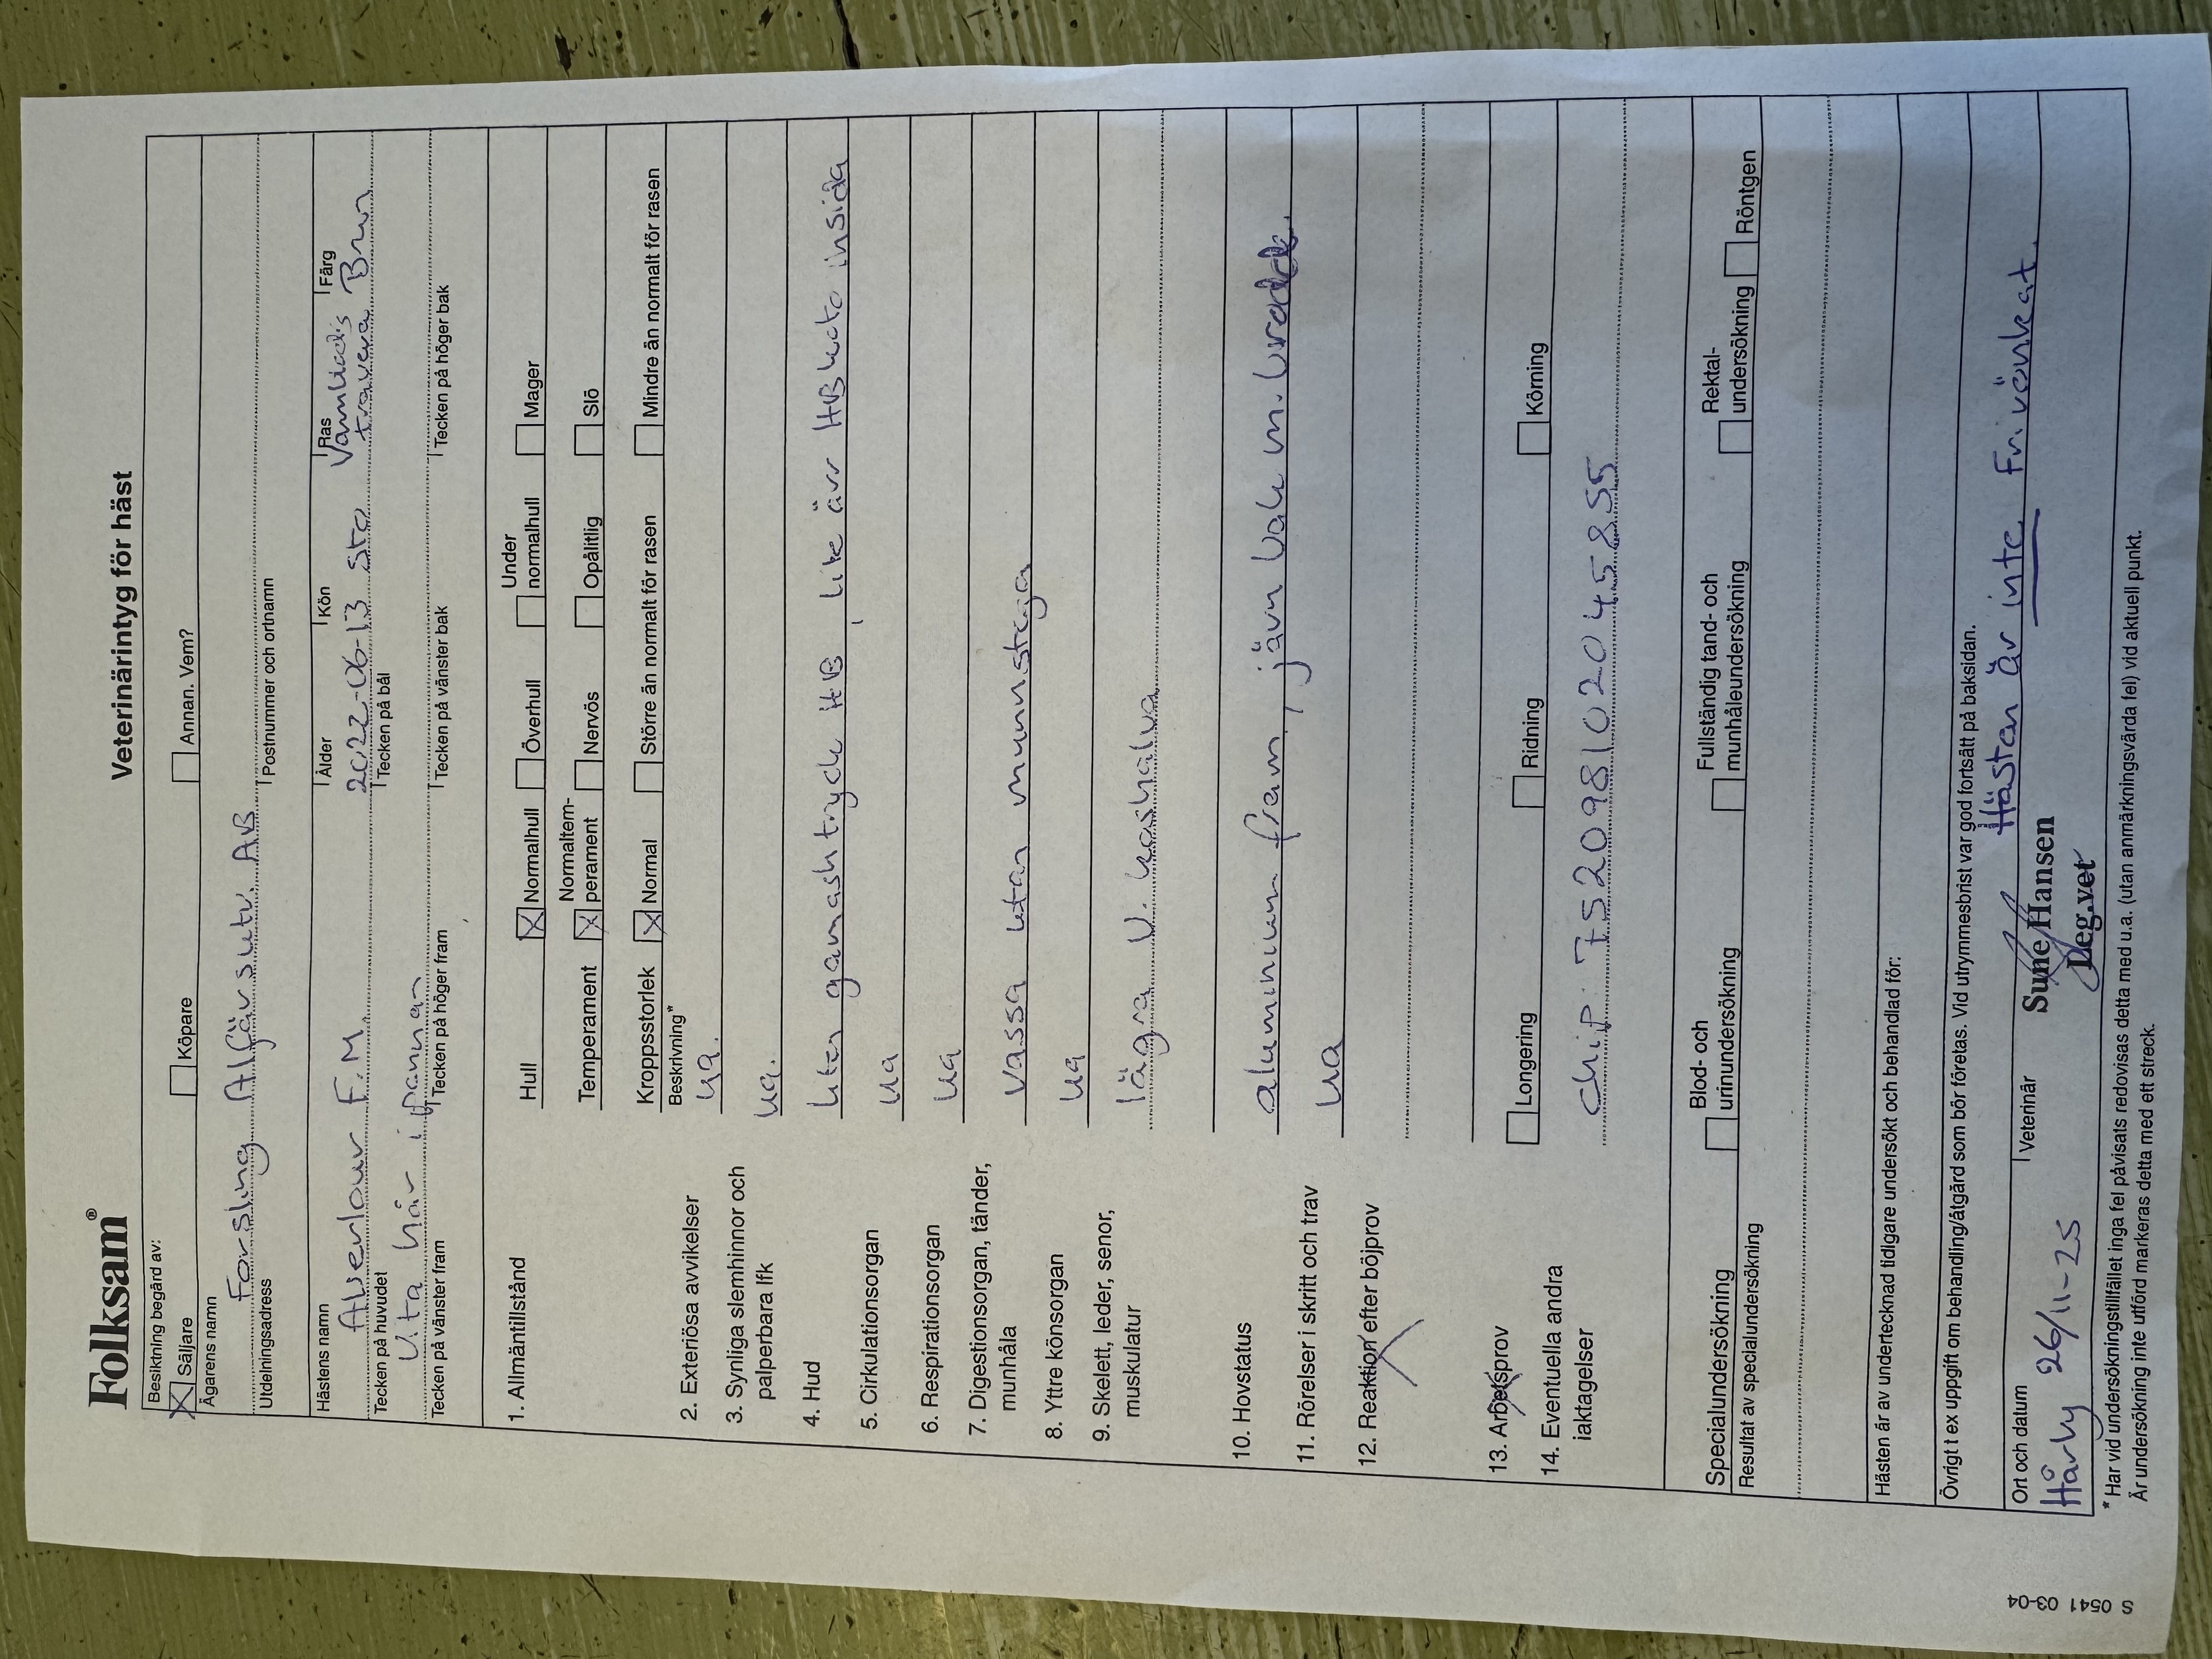 Folksam®
Veterinärintyg för häst
Besiktning begärd av:
X Säljare Köpare Annan. Vem?
Ägarens namn
Forsling Affärsutv. AB
Utdelningsadress Postnummer och ortnamn
Hästens namn Ålder Kön Ras Färg
F.M. 2022-06-13 Sto Varmblodig travare Brun
Tecken på huvudet Tecken på bål
vita hår i pannan
Tecken på vänster fram Tecken på höger fram Tecken på vänster bak Tecken på höger bak
1. Allmäntillstånd Hull X Normalhull Överhull Under normalhull Mager
Temperament X Normaltem-perament Nervös Opålitlig Slö
Kroppsstorlek X Normal Större än normalt för rasen Mindre än normalt för rasen
Beskrivning*
2. Exteriösa avvikelser ua.
3. Synliga slemhinnor och
palperbara lfk ua.
4. Hud litet gamashtryck HB, lite ärr HB hato insida
5. Cirkulationsorgan ua
6. Respirationsorgan ua
7. Digestionsorgan, tänder,
munhåla vassa utan munnstega
8. Yttre könsorgan ua
9. Skelett, leder, senor,
muskulatur V. kashalva
10. Hovstatus aluminium fram, järn bak m.
11. Rörelser i skritt och trav ua
12. Reaktion efter böjprov
13. Arbetsprov Longering Ridning Körning
14. Eventuella andra
iaktagelser chip: 752098102045855
Specialundersökning Blod- och urinundersökning Fullständig tand- och munhåleundersökning Rektal-undersökning Röntgen
Resultat av specialundersökning
Hästen är av undertecknad tidigare undersökt och behandlad för:
Övrigt t ex uppgift om behandling/åtgärd som bör företas. Vid utrymmesbrist var god fortsätt på baksidan.
Hästen är inte Frivänkat.
Ort och datum Veterinär
Hårby 26/11-25 Sune Hansen
Leg.vet
* Har vid undersökningstillfället inga fel påvisats redovisas detta med u.a. (utan anmärkningsvärda fel) vid aktuell punkt.
Är undersökning inte utförd markeras detta med ett streck.
S 0541 03-04